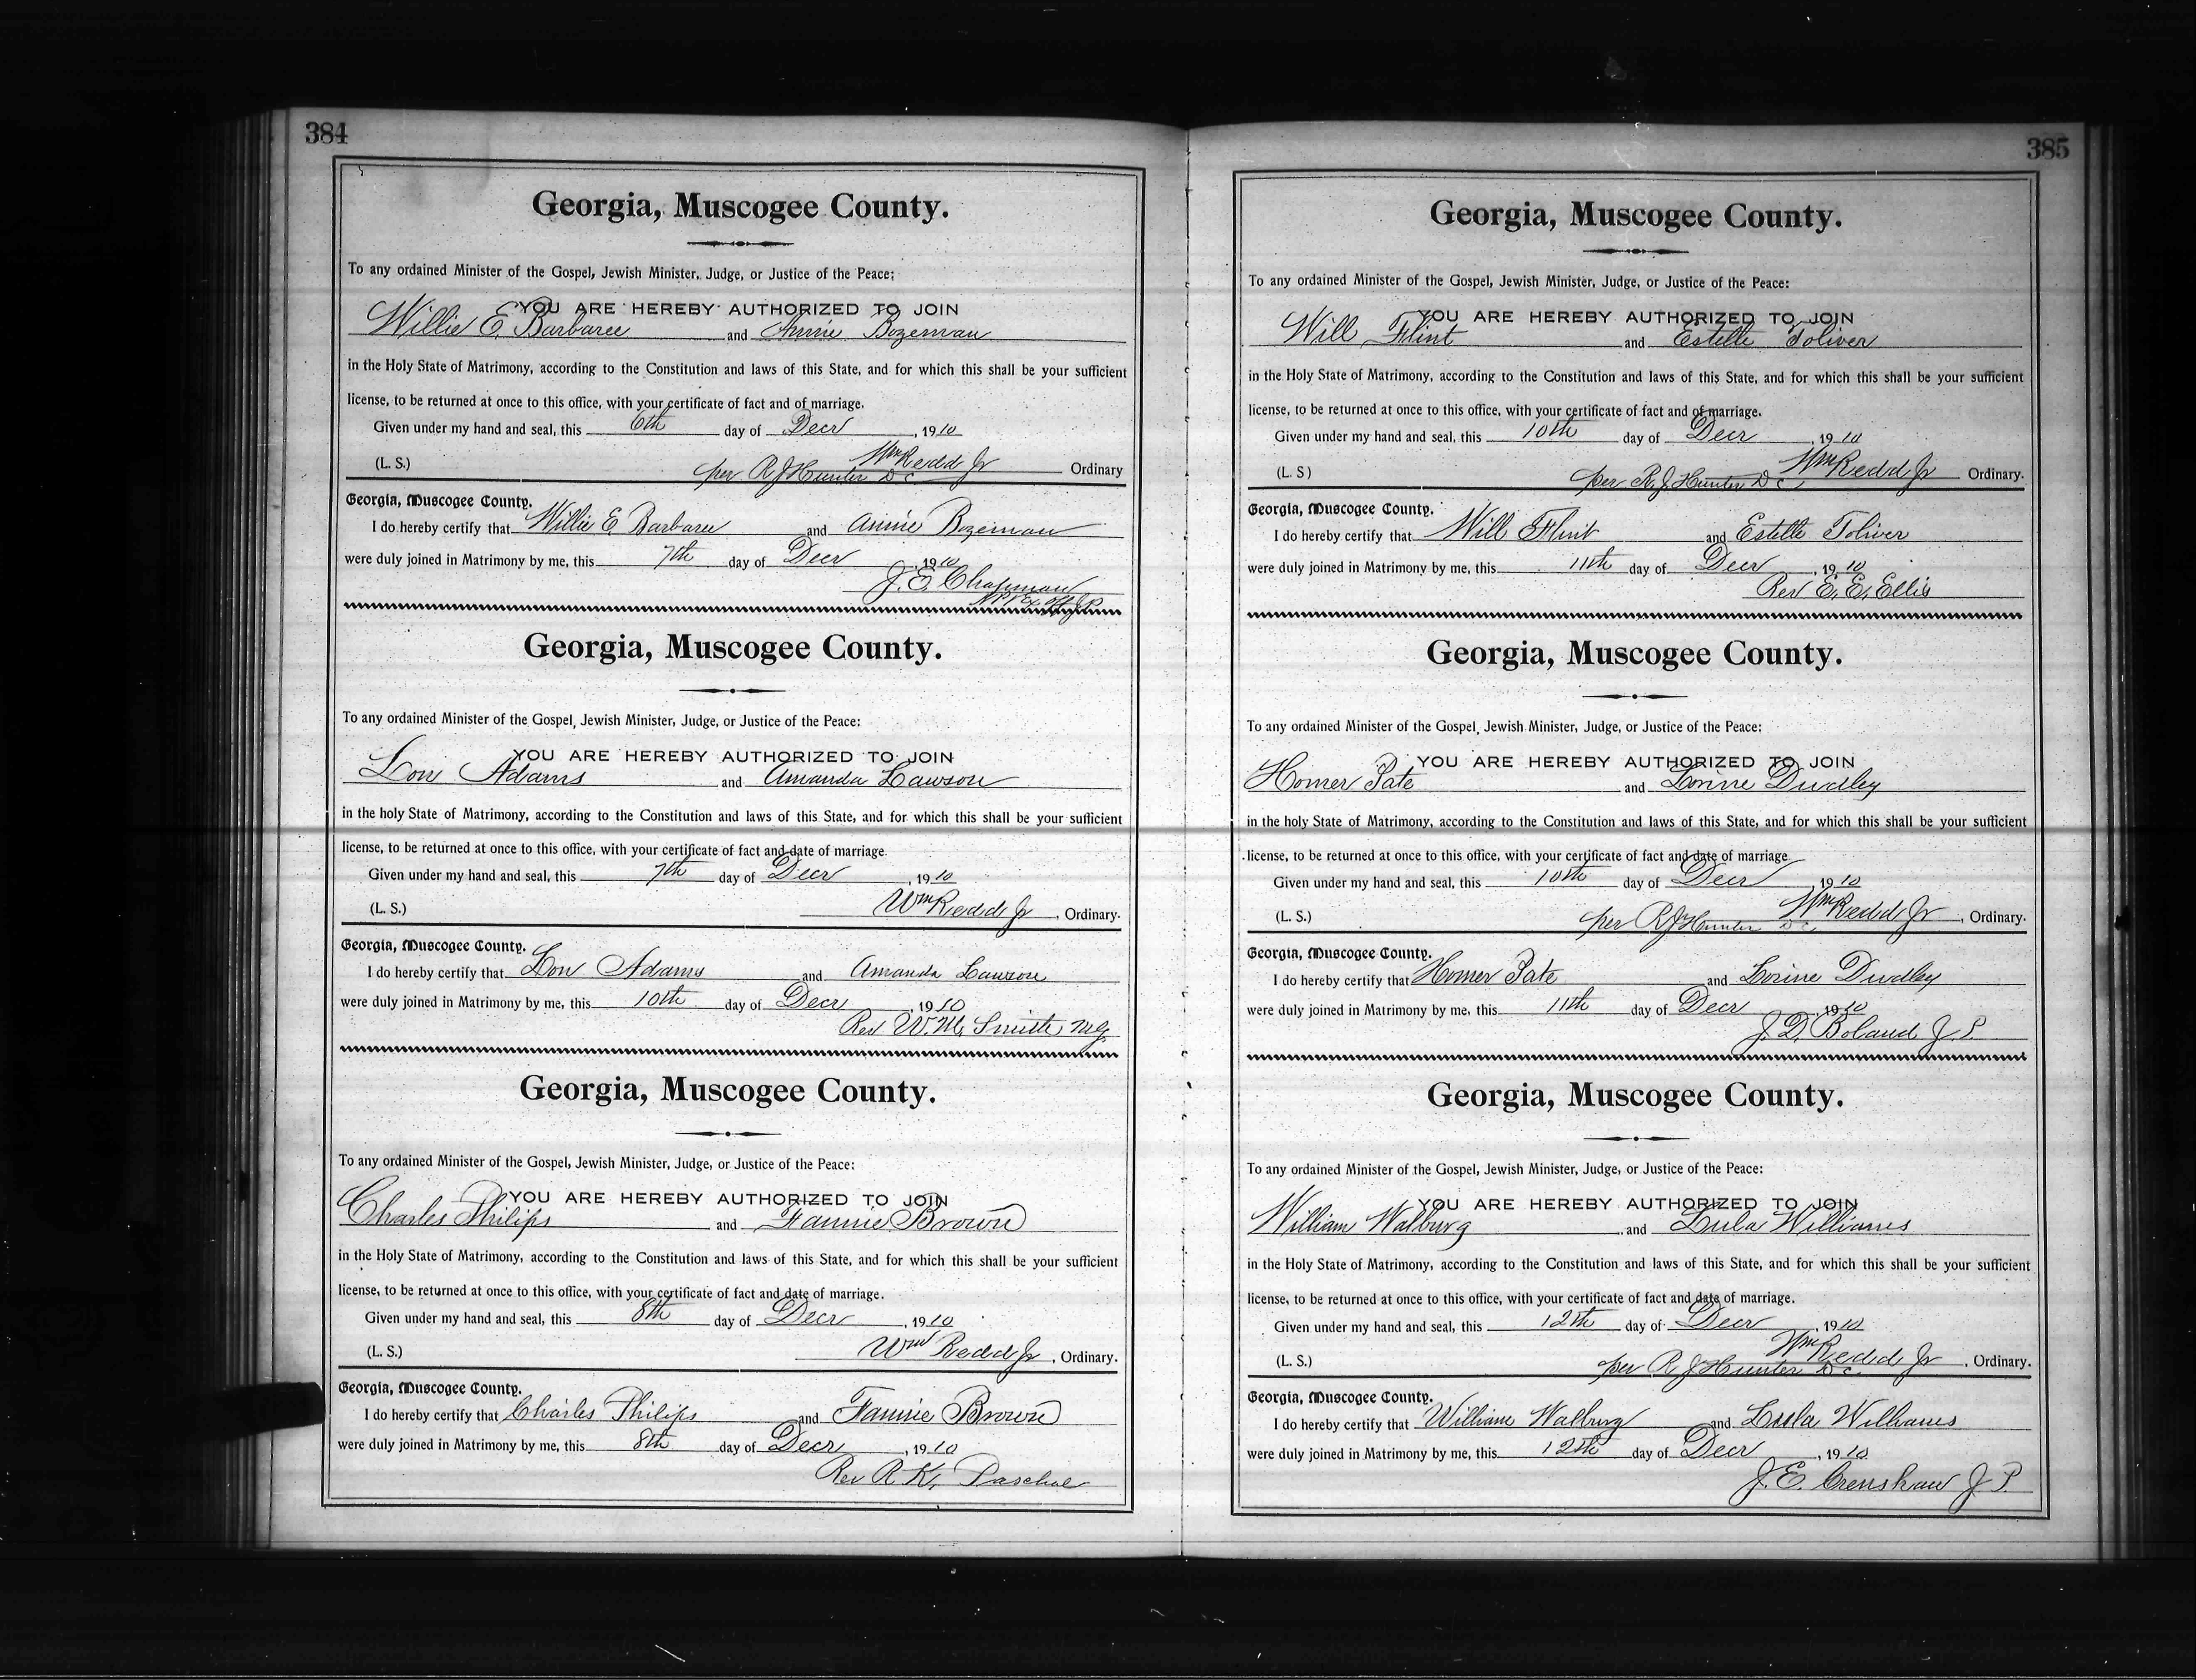 384
Georgia, Muscogee County.
To any ordained Minister of the Gospel, Jewish Minister, Judge, or Justice of the Peace:
YOU ARE HEREBY AUTHORIZED TO JOIN
Willie E. Barbaree and Annie Bozeman
in the Holy State of Matrimony, according to the Constitution and laws of this State, and for which this shall be your sufficient
license, to be returned at once to this office, with your certificate of fact and of marriage.
Given under my hand and seal, this 6th day of Decr, 1910
(L. S.) Wm Redd Jr Ordinary
per R J Hunter D C
Georgia, Muscogee County.
I do hereby certify that Willie E Barbaree and Annie Bozeman
were duly joined in Matrimony by me, this 7th day of Decr, 1910
J. E. Chapman
N P & Ex off J P
Georgia, Muscogee County.
To any ordained Minister of the Gospel, Jewish Minister, Judge, or Justice of the Peace:
YOU ARE HEREBY AUTHORIZED TO JOIN
Lon Adams and Amanda Lawson
in the holy State of Matrimony, according to the Constitution and laws of this State, and for which this shall be your sufficient
license, to be returned at once to this office, with your certificate of fact and date of marriage.
Given under my hand and seal, this 7th day of Decr, 1910
(L. S.) Wm Redd Jr, Ordinary.
Georgia, Muscogee County.
I do hereby certify that Lon Adams and Amanda Lawson
were duly joined in Matrimony by me, this 10th day of Decr, 1910
Rev W. M. Smith M.G.
Georgia, Muscogee County.
To any ordained Minister of the Gospel, Jewish Minister, Judge, or Justice of the Peace:
YOU ARE HEREBY AUTHORIZED TO JOIN
Charles Philips and Fannie Brown
in the Holy State of Matrimony, according to the Constitution and laws of this State, and for which this shall be your sufficient
license, to be returned at once to this office, with your certificate of fact and date of marriage.
Given under my hand and seal, this 8th day of Decr, 1910
(L. S.) Wm Redd Jr, Ordinary.
Georgia, Muscogee County.
I do hereby certify that Charles Philips and Fannie Brown
were duly joined in Matrimony by me, this 8th day of Decr, 1910
Rev R. K. Paschal
385
Georgia, Muscogee County.
To any ordained Minister of the Gospel, Jewish Minister, Judge, or Justice of the Peace:
YOU ARE HEREBY AUTHORIZED TO JOIN
Will Flint and Estelle Toliver
in the Holy State of Matrimony, according to the Constitution and laws of this State, and for which this shall be your sufficient
license, to be returned at once to this office, with your certificate of fact and of marriage.
Given under my hand and seal, this 10th day of Decr, 1910
(L. S) Wm Redd Jr Ordinary.
per R. J. Hunter D C,
Georgia, Muscogee County.
I do hereby certify that Will Flint and Estelle Toliver
were duly joined in Matrimony by me, this 11th day of Decr, 1910
Rev E. E. Ellis
Georgia, Muscogee County.
To any ordained Minister of the Gospel, Jewish Minister, Judge, or Justice of the Peace:
YOU ARE HEREBY AUTHORIZED TO JOIN
Homer Pate and Lorine Dudley
in the holy State of Matrimony, according to the Constitution and laws of this State, and for which this shall be your sufficient
license, to be returned at once to this office, with your certificate of fact and date of marriage
Given under my hand and seal, this 10th day of Decr 1910
(L. S.) Wm Redd Jr, Ordinary.
per R J Hunter D C,
Georgia, Muscogee County.
I do hereby certify that Homer Pate and Lorine Dudley
were duly joined in Matrimony by me, this 11th day of Decr, 1910
J. D. Boland J. P.
Georgia, Muscogee County.
To any ordained Minister of the Gospel, Jewish Minister, Judge, or Justice of the Peace:
YOU ARE HEREBY AUTHORIZED TO JOIN
William Walburg and Lula Williams
in the Holy State of Matrimony, according to the Constitution and laws of this State, and for which this shall be your sufficient
license, to be returned at once to this office, with your certificate of fact and date of marriage.
Given under my hand and seal, this 12th day of Decr, 1910
(L. S.) Wm Redd Jr, Ordinary.
per R J Hunter D C.
Georgia, Muscogee County.
I do hereby certify that William Walburg and Lula Williams
were duly joined in Matrimony by me, this 12th day of Decr, 1910
J. E. Crenshaw J P.